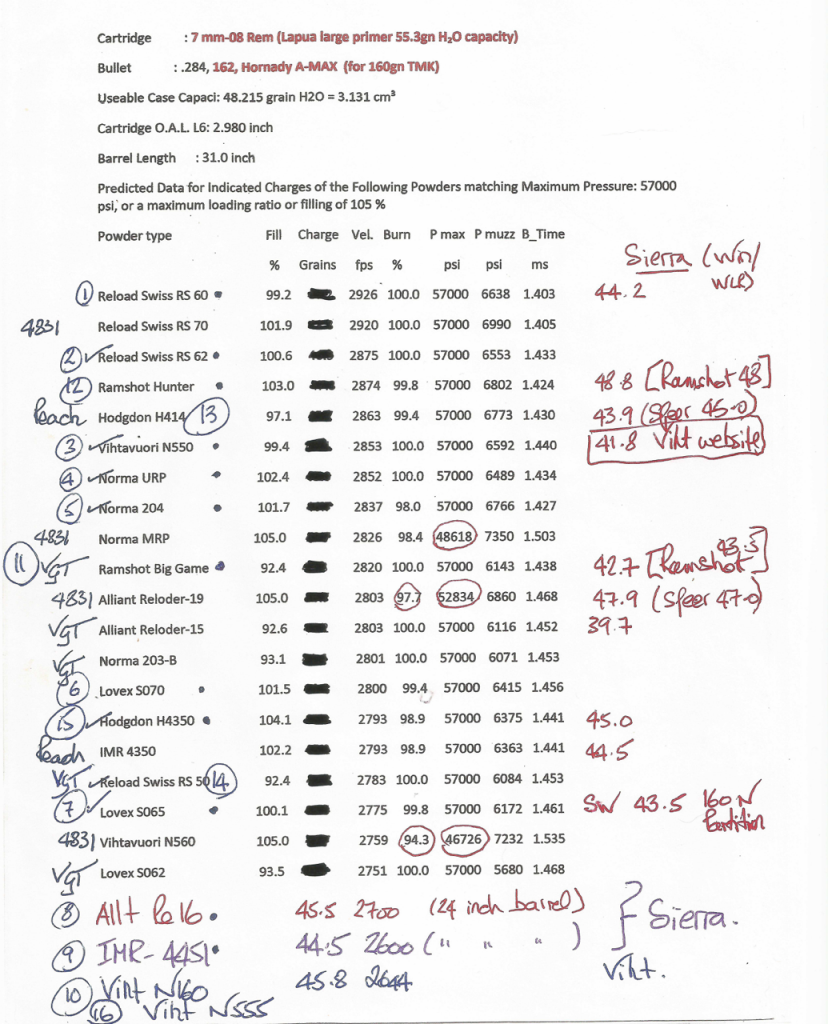 Cartridge : 7 mm-08 Rem (Lapua large primer 55.3gn H₂O capacity)
Bullet : .284, 162, Hornady A-MAX (for 160gn TMK)
Useable Case Capaci: 48.215 grain H2O = 3.131 cm³
Cartridge O.A.L. L6: 2.980 inch
Barrel Length : 31.0 inch
Predicted Data for Indicated Charges of the Following Powders matching Maximum Pressure: 57000
psi, or a maximum loading ratio or filling of 105 %
Powder type Fill Charge Vel. Burn P max P muzz B_Time
% Grains fps % psi psi ms
Sierra (Win/
WLR)
① Reload Swiss RS 60 • 99.2 2926 100.0 57000 6638 1.403 44.2
4831 Reload Swiss RS 70 101.9 2920 100.0 57000 6990 1.405
② ✓ Reload Swiss RS 62 • 100.6 2875 100.0 57000 6553 1.433
⑫ Ramshot Hunter • 103.0 2874 99.8 57000 6802 1.424 48.8 [Ramshot 48]
Reach Hodgdon H414 ⑬ 97.1 2863 99.4 57000 6773 1.430 43.9 (Speer 45.0)
③ ✓ Vihtavuori N550 • 99.4 2853 100.0 57000 6592 1.440 41.8 Viht website
④ ✓ Norma URP • 102.4 2852 100.0 57000 6489 1.434
⑤ ✓ Norma 204 • 101.7 2837 98.0 57000 6766 1.427
4831 Norma MRP 105.0 2826 98.4 48618 7350 1.503
⑪ VGT Ramshot Big Game • 92.4 2820 100.0 57000 6143 1.438 42.7 [Ramshot 43.5]
4831 Alliant Reloder-19 105.0 2803 97.7 52834 6860 1.468 47.9 (Speer 47.0)
VGT Alliant Reloder-15 92.6 2803 100.0 57000 6116 1.452 39.7
VGT Norma 203-B 93.1 2801 100.0 57000 6071 1.453
⑥ Lovex S070 • 101.5 2800 99.4 57000 6415 1.456
⑮ ✓ Hodgdon H4350 • 104.1 2793 98.9 57000 6375 1.441 45.0
Reach IMR 4350 102.2 2793 98.9 57000 6363 1.441 44.5
VGT ✓ Reload Swiss RS 50 ⑭ 92.4 2783 100.0 57000 6084 1.453
⑦ ✓ Lovex S065 • 100.1 2775 99.8 57000 6172 1.461 SW 43.5 160 N
Partition
4831 Vihtavuori N560 105.0 2759 94.3 46726 7232 1.535
VGT Lovex S062 93.5 2751 100.0 57000 5680 1.468
⑧ Allt Re16 • 45.5 2700 (24 inch barrel) } Sierra.
⑨ IMR-4451 • 44.5 2600 (" " ")
⑩ Viht N160 45.8 2644 Viht.
⑯ Viht N555